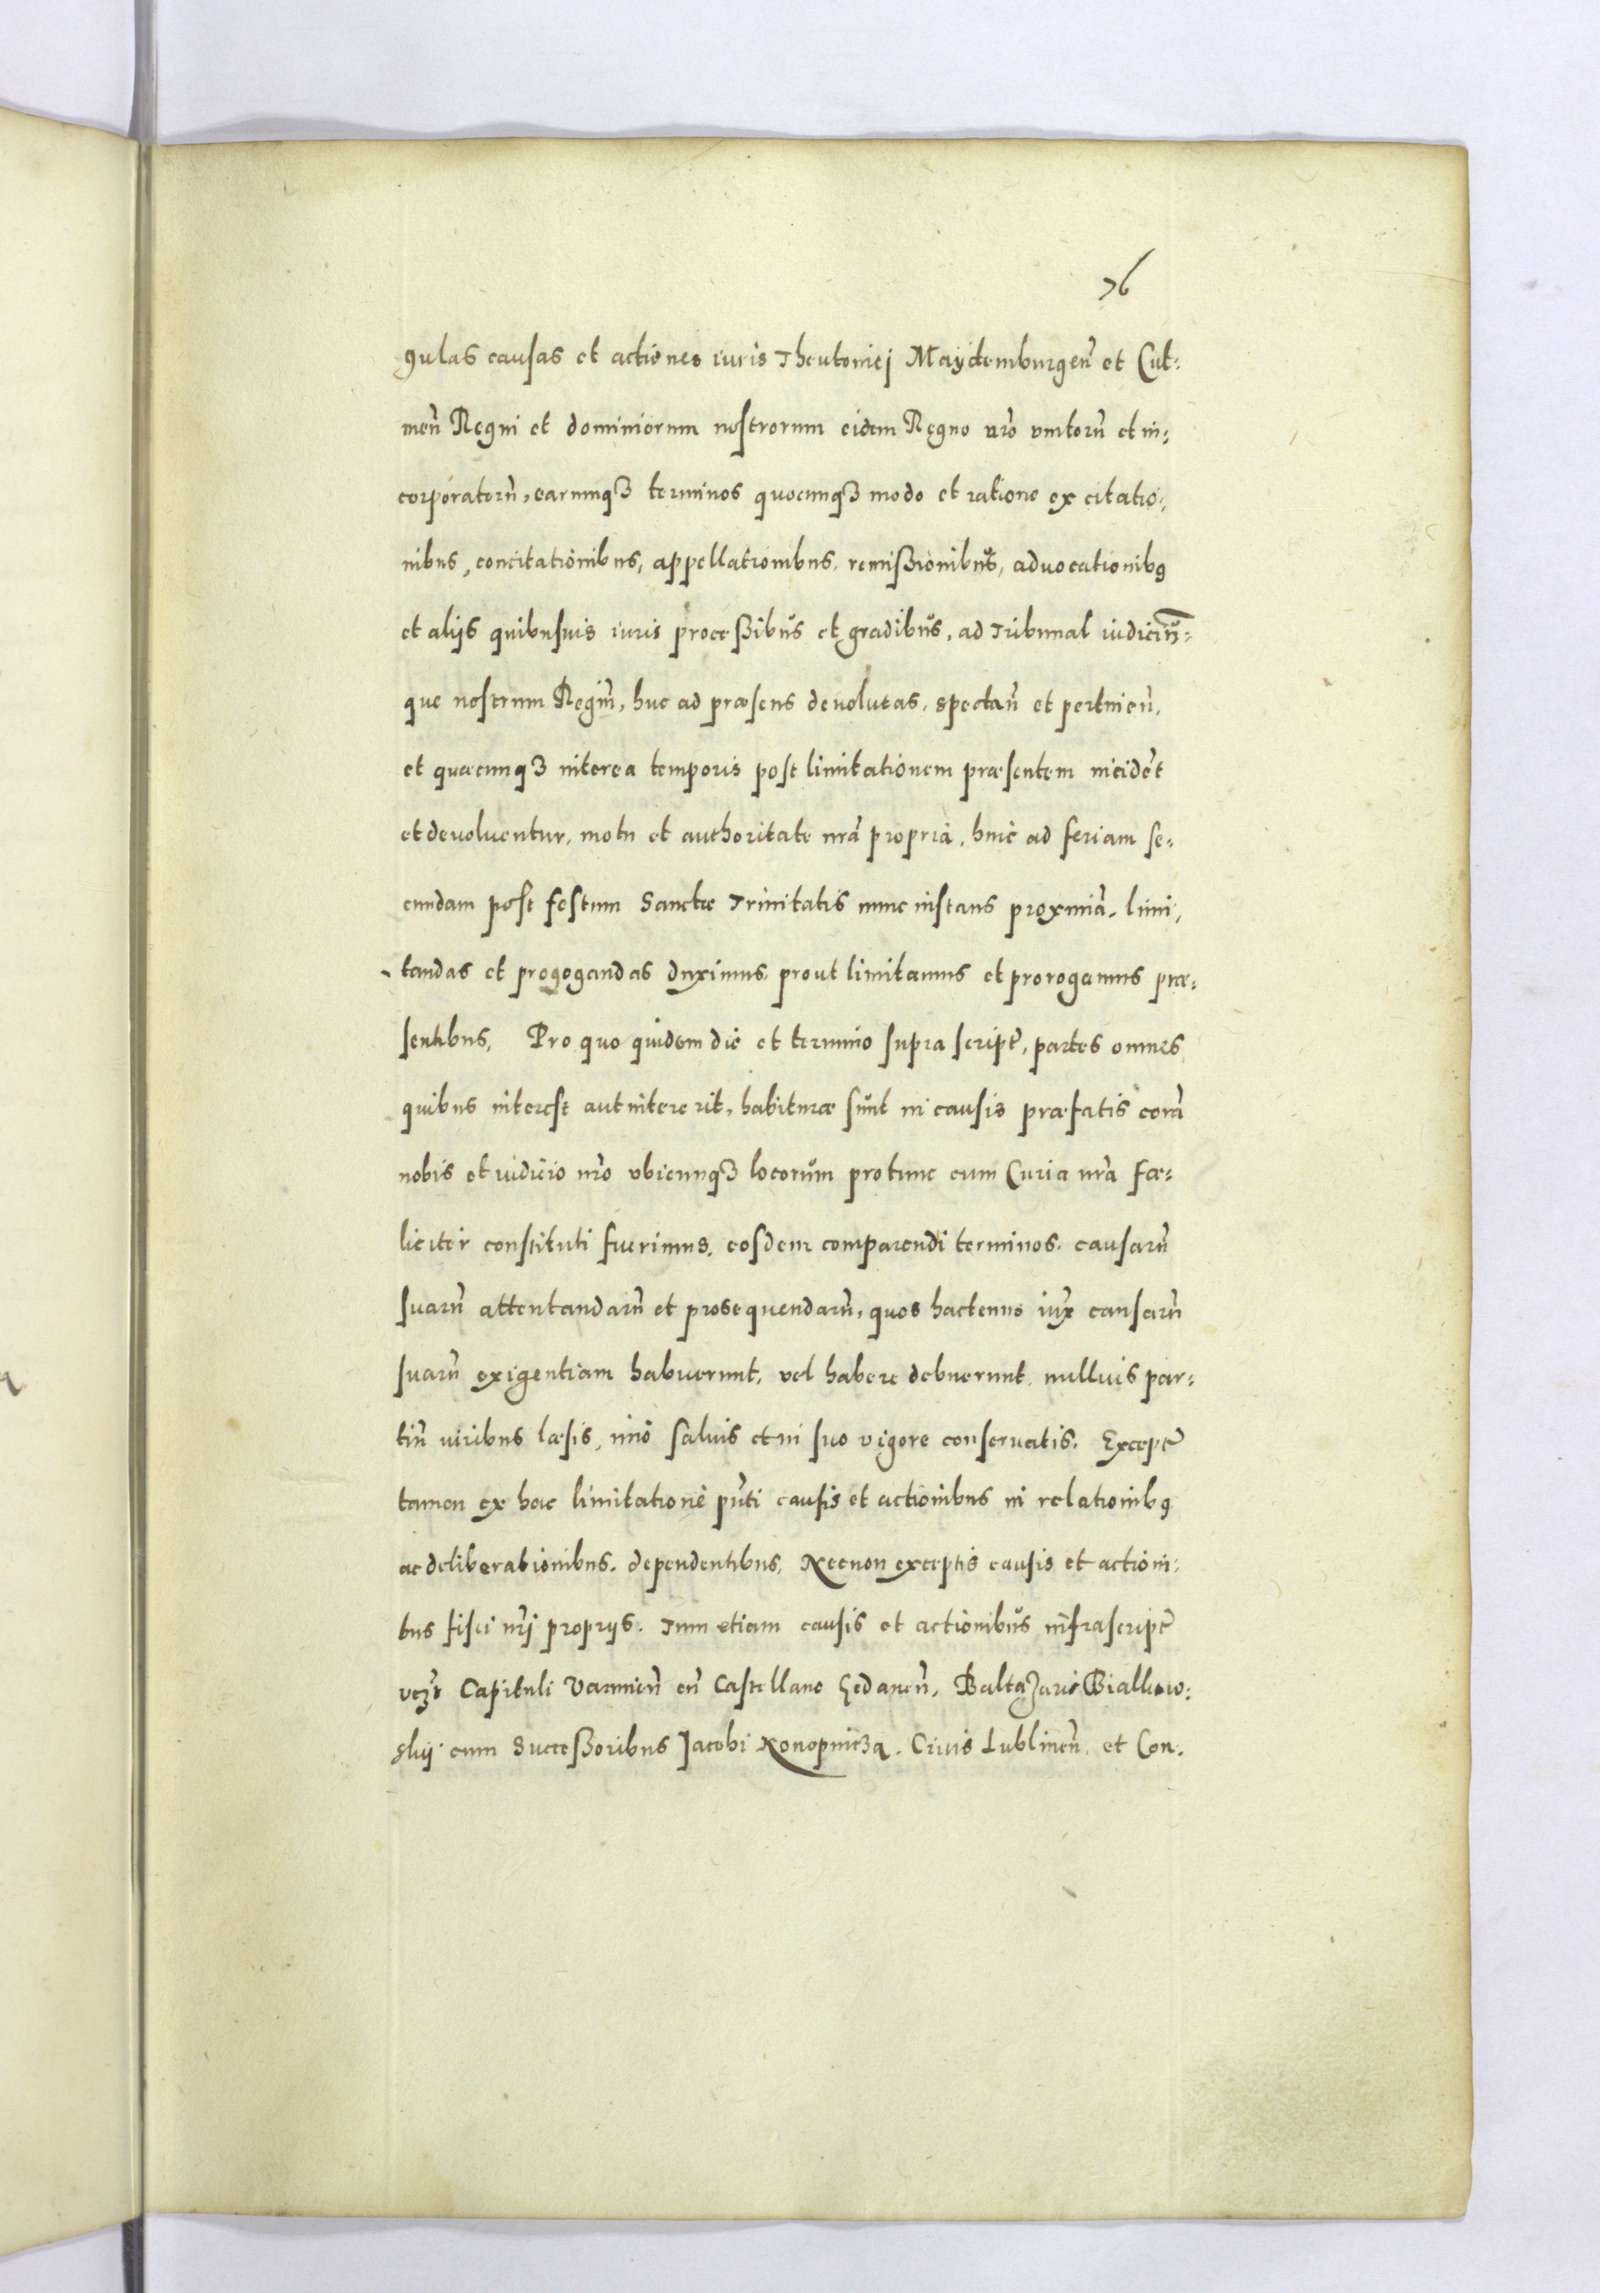 76
gulas causas et actiones iuris Theutonicj Maydemburgen̄ et Cul:
men̄ Regni et dominiorum nostrorum eidem Regno nr̄o vnitorū et in:
corporatorū, earumqꝫ terminos quocunqꝫ modo et ratione ex citatio:
nibus, concitationibus, appellationibus, remissionibus, aduocationibꝰ
et alijs quibusuis iuris processibus et gradibus, ad Tribunal iudiciū:
que nostrum Regiū, huc ad præsens deuolutas, spectan̄ et pertinen̄,
et quæcunqꝫ interea temporis post limitationem præsentem incidēt
et deuoluentur, motu et authoritate nr̄a propria, hinc ad feriam se:
cundam post festum Sanctæ Trinitatis nunc instans proximā, limi,
tandas et progogandas duximus, prout limitamus et prorogamus præ:
sentibus, Pro quo quidem die et termino supra script̄, partes omnes
quibus interest aut intererit, habituræ sunt in causis præfatis corā
nobis et iudicio nr̄o vbicunqꝫ locorum protunc cum Curia nr̄a fœ:
liciter constituti fuerimus, eosdem comparendi terminos, causarū
suarū attentandarū et prosequendarū, quos hactenus iux̄ causarū
suarū exigentiam habuerunt, vel habere debuerunt, nulluis par:
tiū iuribus læsis, imò saluis et in suo vigore conseruatis. Except̄
tamen ex hac limitatione pn̄ti causis et actionibus in relationibꝰ
ac deliberationibus, dependentibus, Necnon exceptis causis et actioni:
bus fisci nr̄j proprijs. Tum etiam causis et actionibus infrascript̄
vꝫt Capituli Varmien̄ cū Castellano Gedanen̄, Baltazaris Biallow:
skij cum Successoribus Jacobi Konopnicza, Ciuis Lublinen̄, et Con.